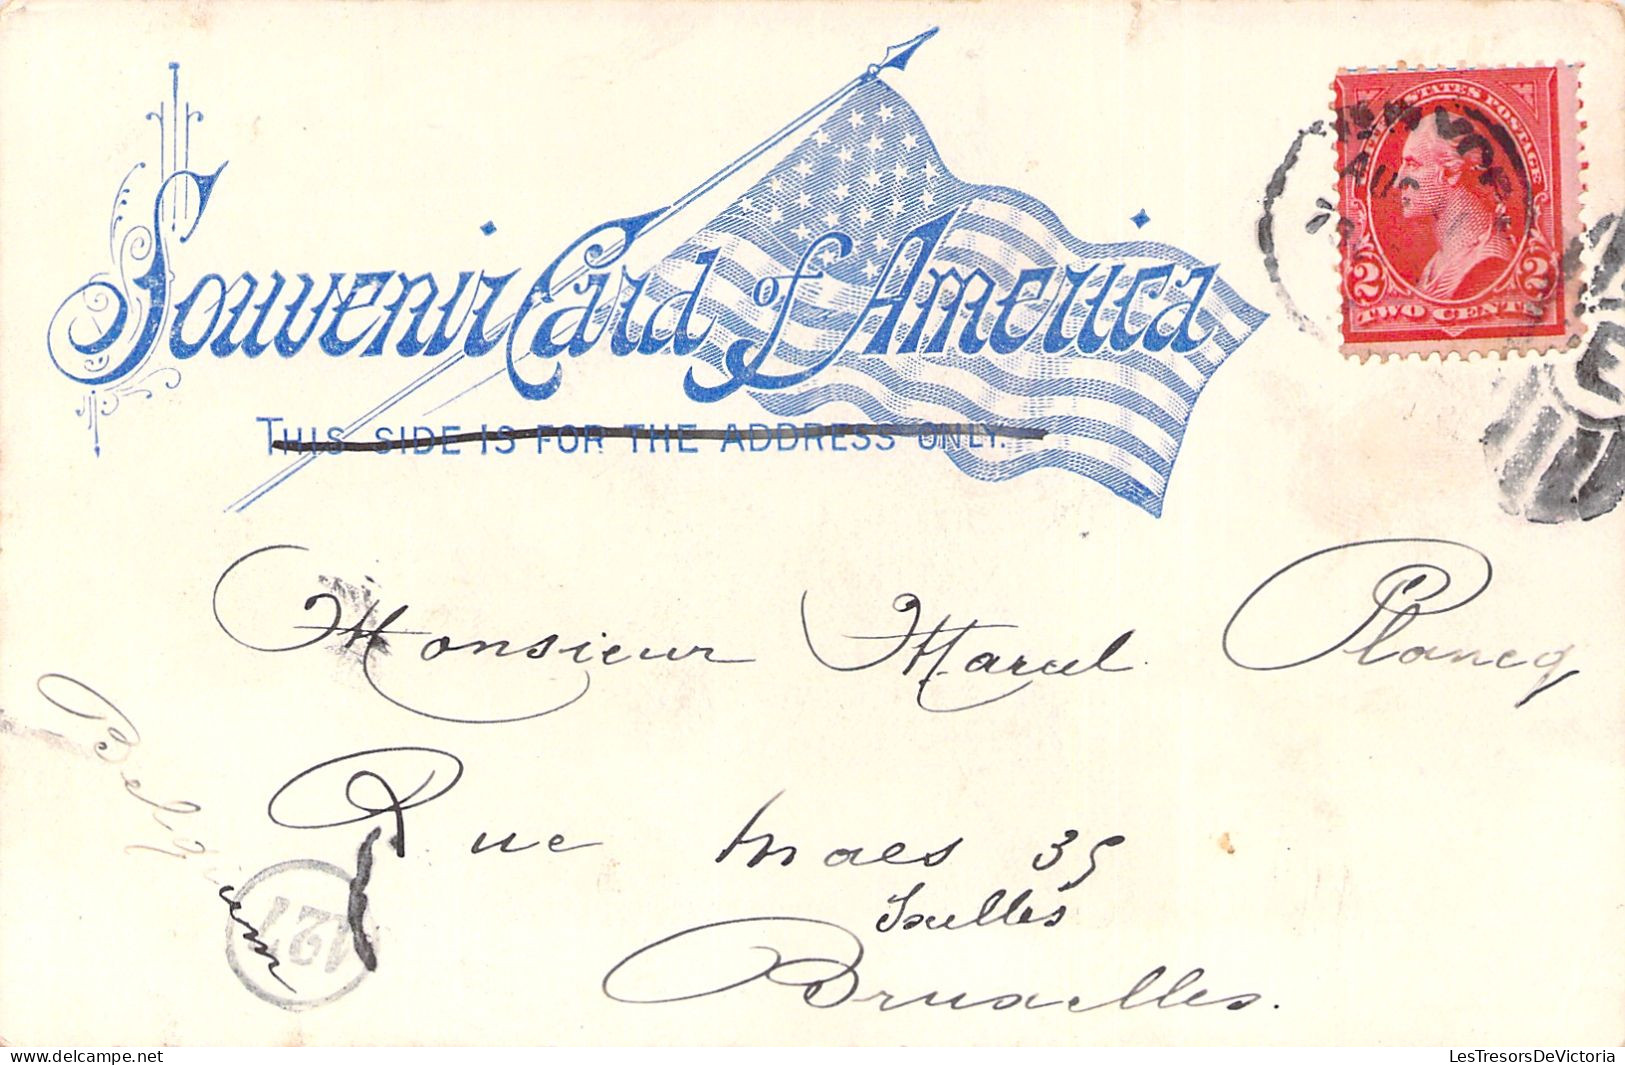 Souvenir Card of America
THIS SIDE IS FOR THE ADDRESS ONLY.
STATES POSTAGE
2 2
TWO CENTS
E
Monsieur Marcel Plancq
Rue Maes 35
Ixelles
Bruxelles.
Belgium
LesTresorsDeVictoria